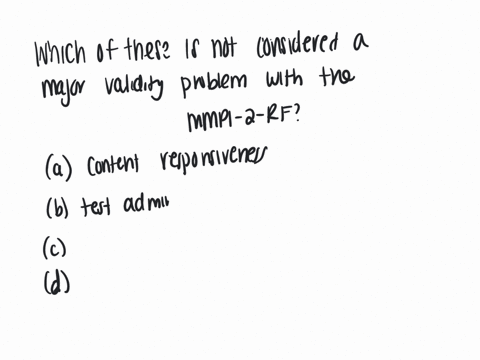 Which of these? Is not considered a
major validity problem with the
MMPI-2-RF?
(a) content responsiveness
(b) test admi
(c)
(d)